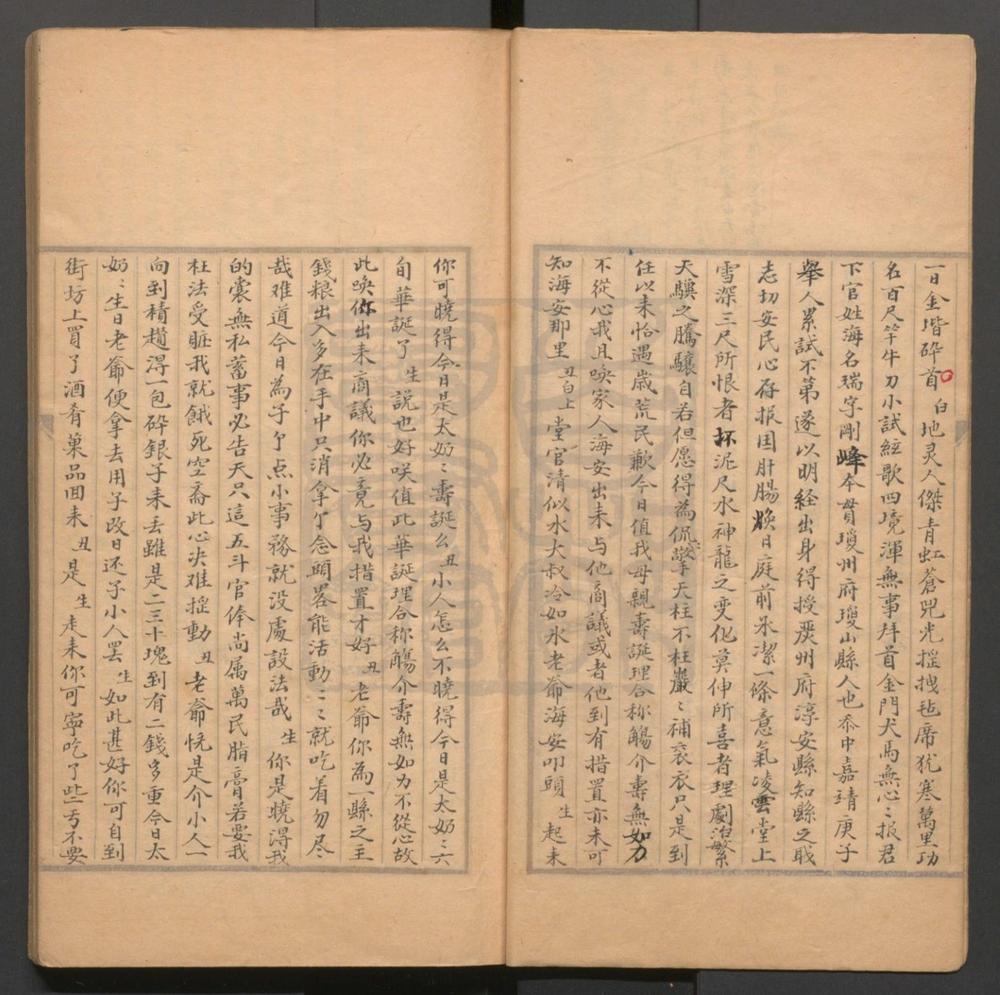 一日金堦碎首白地灵人傑青虹蒼兕光摇拽毡席犹寒萬里功
名百尺竿牛刀小試絃歌四境渾無事拜首金門犬馬無心〻报君
下官姓海名瑞字剛峰本貫瓊州府瓊山縣人也忝中嘉靖庚子
舉人累試不第遂以明经出身得授嚴州府淳安縣知縣之職
志切安民心存报国肝腸焕日庭前氷潔一條意氣凌雲堂上
雪深三尺所恨者杯泥尺水神龍之变化莫伸所喜者理劇治繁
天驥之騰驤自若但愿得為侃擎天柱不枉巖〻補衮衣只是到
任以来恰遇歳荒民歉今日值我母親壽誕理合称觴介壽無如力
不從心我且唤家人海安出来与他商議或者他到有措置亦未可
知海安那里丑白上堂官清似水大叔冷如氷老爺海安叩頭生起来
你可曉得今日是太奶〻壽誕么丑小人怎么不曉得今日是太奶〻六
旬華誕了生說也好咲值此華誕理合称觴介壽無如力不從心故
此唤你出来商議你必竟与我措置才好丑老爺你為一縣之主
錢粮出入多在手中只消拿个念頭畧能活動〻〻就吃着勿尽
哉难道今日為子个点小事務就没處設法哉生你是曉得我
的囊無私蓄事必告天只這五斗官俸尚属萬民脂膏若要我
枉法受賍我就餓死空斋此心决难摇動丑老爺恍是介小人一
向到積趲得一包碎銀子来丢雖是二三十塊到有二錢多重今日太
奶〻生日老爺便拿去用子改日还子小人罢生如此甚好你可自到
街坊上買了酒肴菓品回来丑是生走来你可寧吃了些亏不要